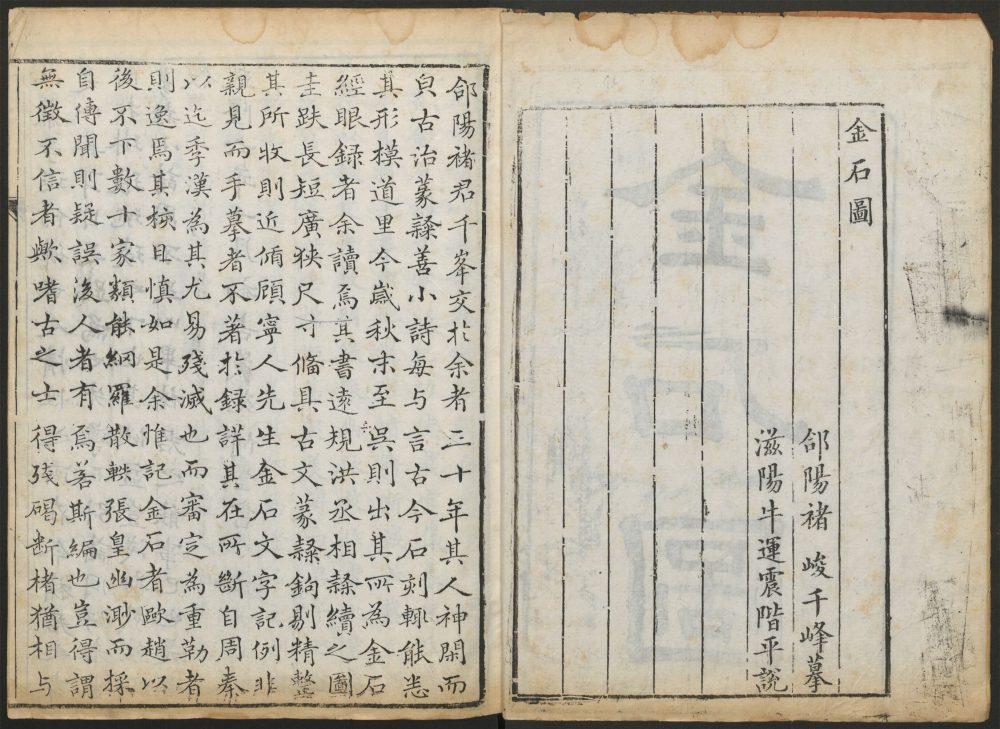 金石圖
郃陽褚 峻千峰摹
滋陽牛運震階平說
郃陽褚君千峯交於余者三十年其人神閑而
皃古治篆隸善小詩每与言古今石刻輒能悉
其形模道里今歲秋末至吳則出其所為金石
經眼録者余讀焉其書遠規洪丞相隸續之圖
圭趺長短廣狹尺寸俻具古文篆隸鉤剔精鑿
其所收則近循顧寧人先生金石文字記例非
親見而手摹者不著於録詳其在所斷自周秦
以迄季漢為其尤易殘滅也而審定為重勒者
則逸焉其核且慎如是余惟記金石者歐趙以
後不下數十家類能網羅散軼張皇幽渺而採
自傳聞則疑誤後人者有焉若斯編也豈得謂
無徵不信者歟嗜古之士得殘碣断楮猶相与